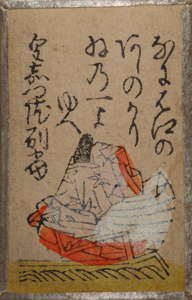 なには江の
あしのかり
ねの一よ
ゆへ
皇嘉門院別当